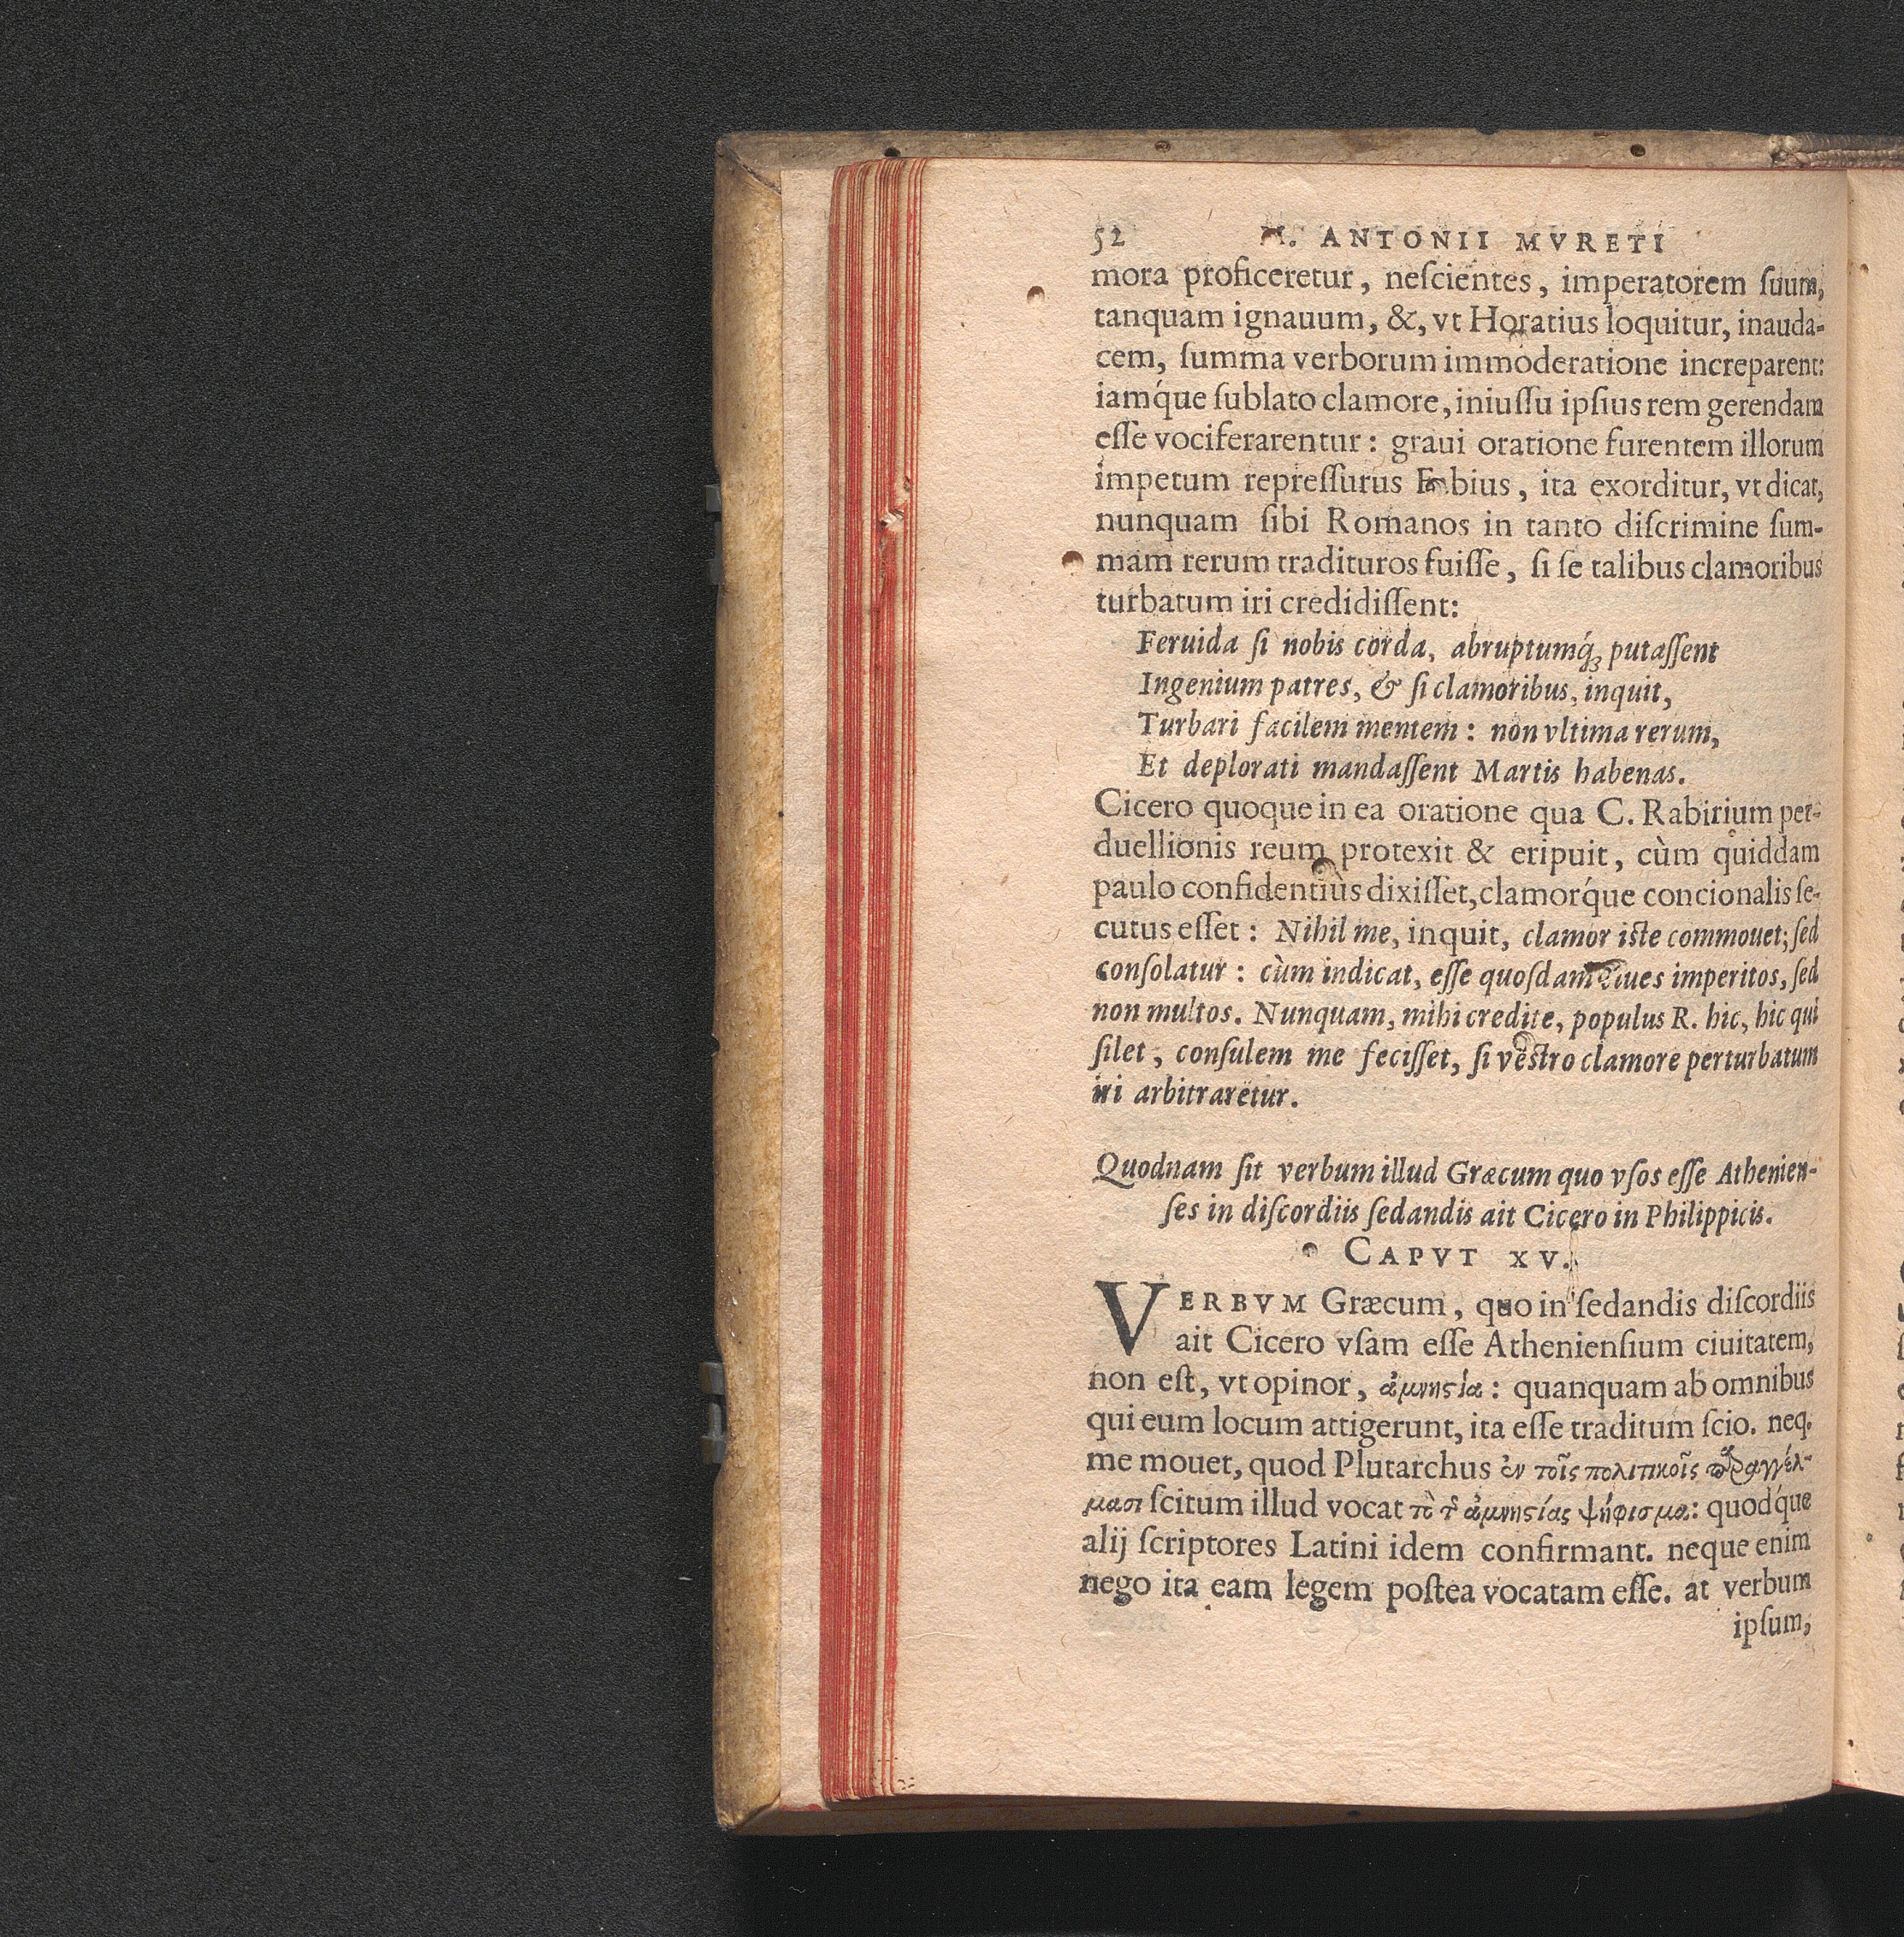 52 M. ANTONII MVRETI
mora proficeretur, neſcientes, imperatorem ſuum,
tanquam ignauum, &, vt Horatius loquitur, inauda-
cem, ſumma verborum immoderatione increparent:
iamq́ue ſublato clamore, iniuſſu ipſius rem gerendam
eſſe vociferarentur: graui oratione furentem illorum
impetum repreſſurus Fabius, ita exorditur, vt dicat,
nunquam ſibi Romanos in tanto diſcrimine ſum-
mam rerum tradituros fuiſſe, ſi ſe talibus clamoribus
turbatum iri credidiſſent:
Feruida ſi nobis corda, abruptumq́ꝫ putaſſent
Ingenium patres, & ſi clamoribus, inquit,
Turbari facilem mentem: non vltima rerum,
Et deplorati mandaſſent Martis habenas.
Cicero quoque in ea oratione qua C. Rabirium per-
duellionis reum protexit & eripuit, cùm quiddam
paulo confidentius dixiſſet, clamorq́ue concionalis ſe-
cutus eſſet: Nihil me, inquit, clamor iſte commouet; ſed
conſolatur: cùm indicat, eſſe quoſdam ciues imperitos, ſed
non multos. Nunquam, mihi credite, populus R. hic, hic qui
ſilet, conſulem me feciſſet, ſi veſtro clamore perturbatum
iri arbitraretur.
Quodnam ſit verbum illud Græcum quo vſos eſſe Athenien-
ſes in diſcordiis ſedandis ait Cicero in Philippicis.
CAPVT XV.
VERBVM Græcum, quo in ſedandis diſcordiis
ait Cicero vſam eſſe Athenienſium ciuitatem,
non eſt, vt opinor, ἀμνηστία: quanquam ab omnibus
qui eum locum attigerunt, ita eſſe traditum ſcio. neq.
me mouet, quod Plutarchus ἐν τοῖς πολιτικοῖς παραγγέλ-
μασι ſcitum illud vocat τὸ τῆς ἀμνηστίας ψήφισμα: quodq́ue
alij ſcriptores Latini idem confirmant. neque enim
nego ita eam legem poſtea vocatam eſſe. at verbum
ipſum,